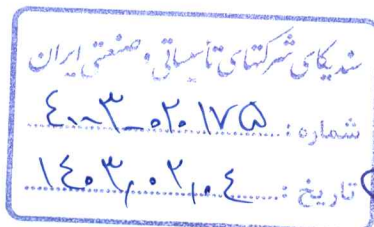 سندیکای شرکتهای تأسیساتی و صنعتی ایران
شماره: ۴۰۰۳-۰۲۰۱۷۵
تاریخ: ۱۴۰۳,۰۲,۰۴